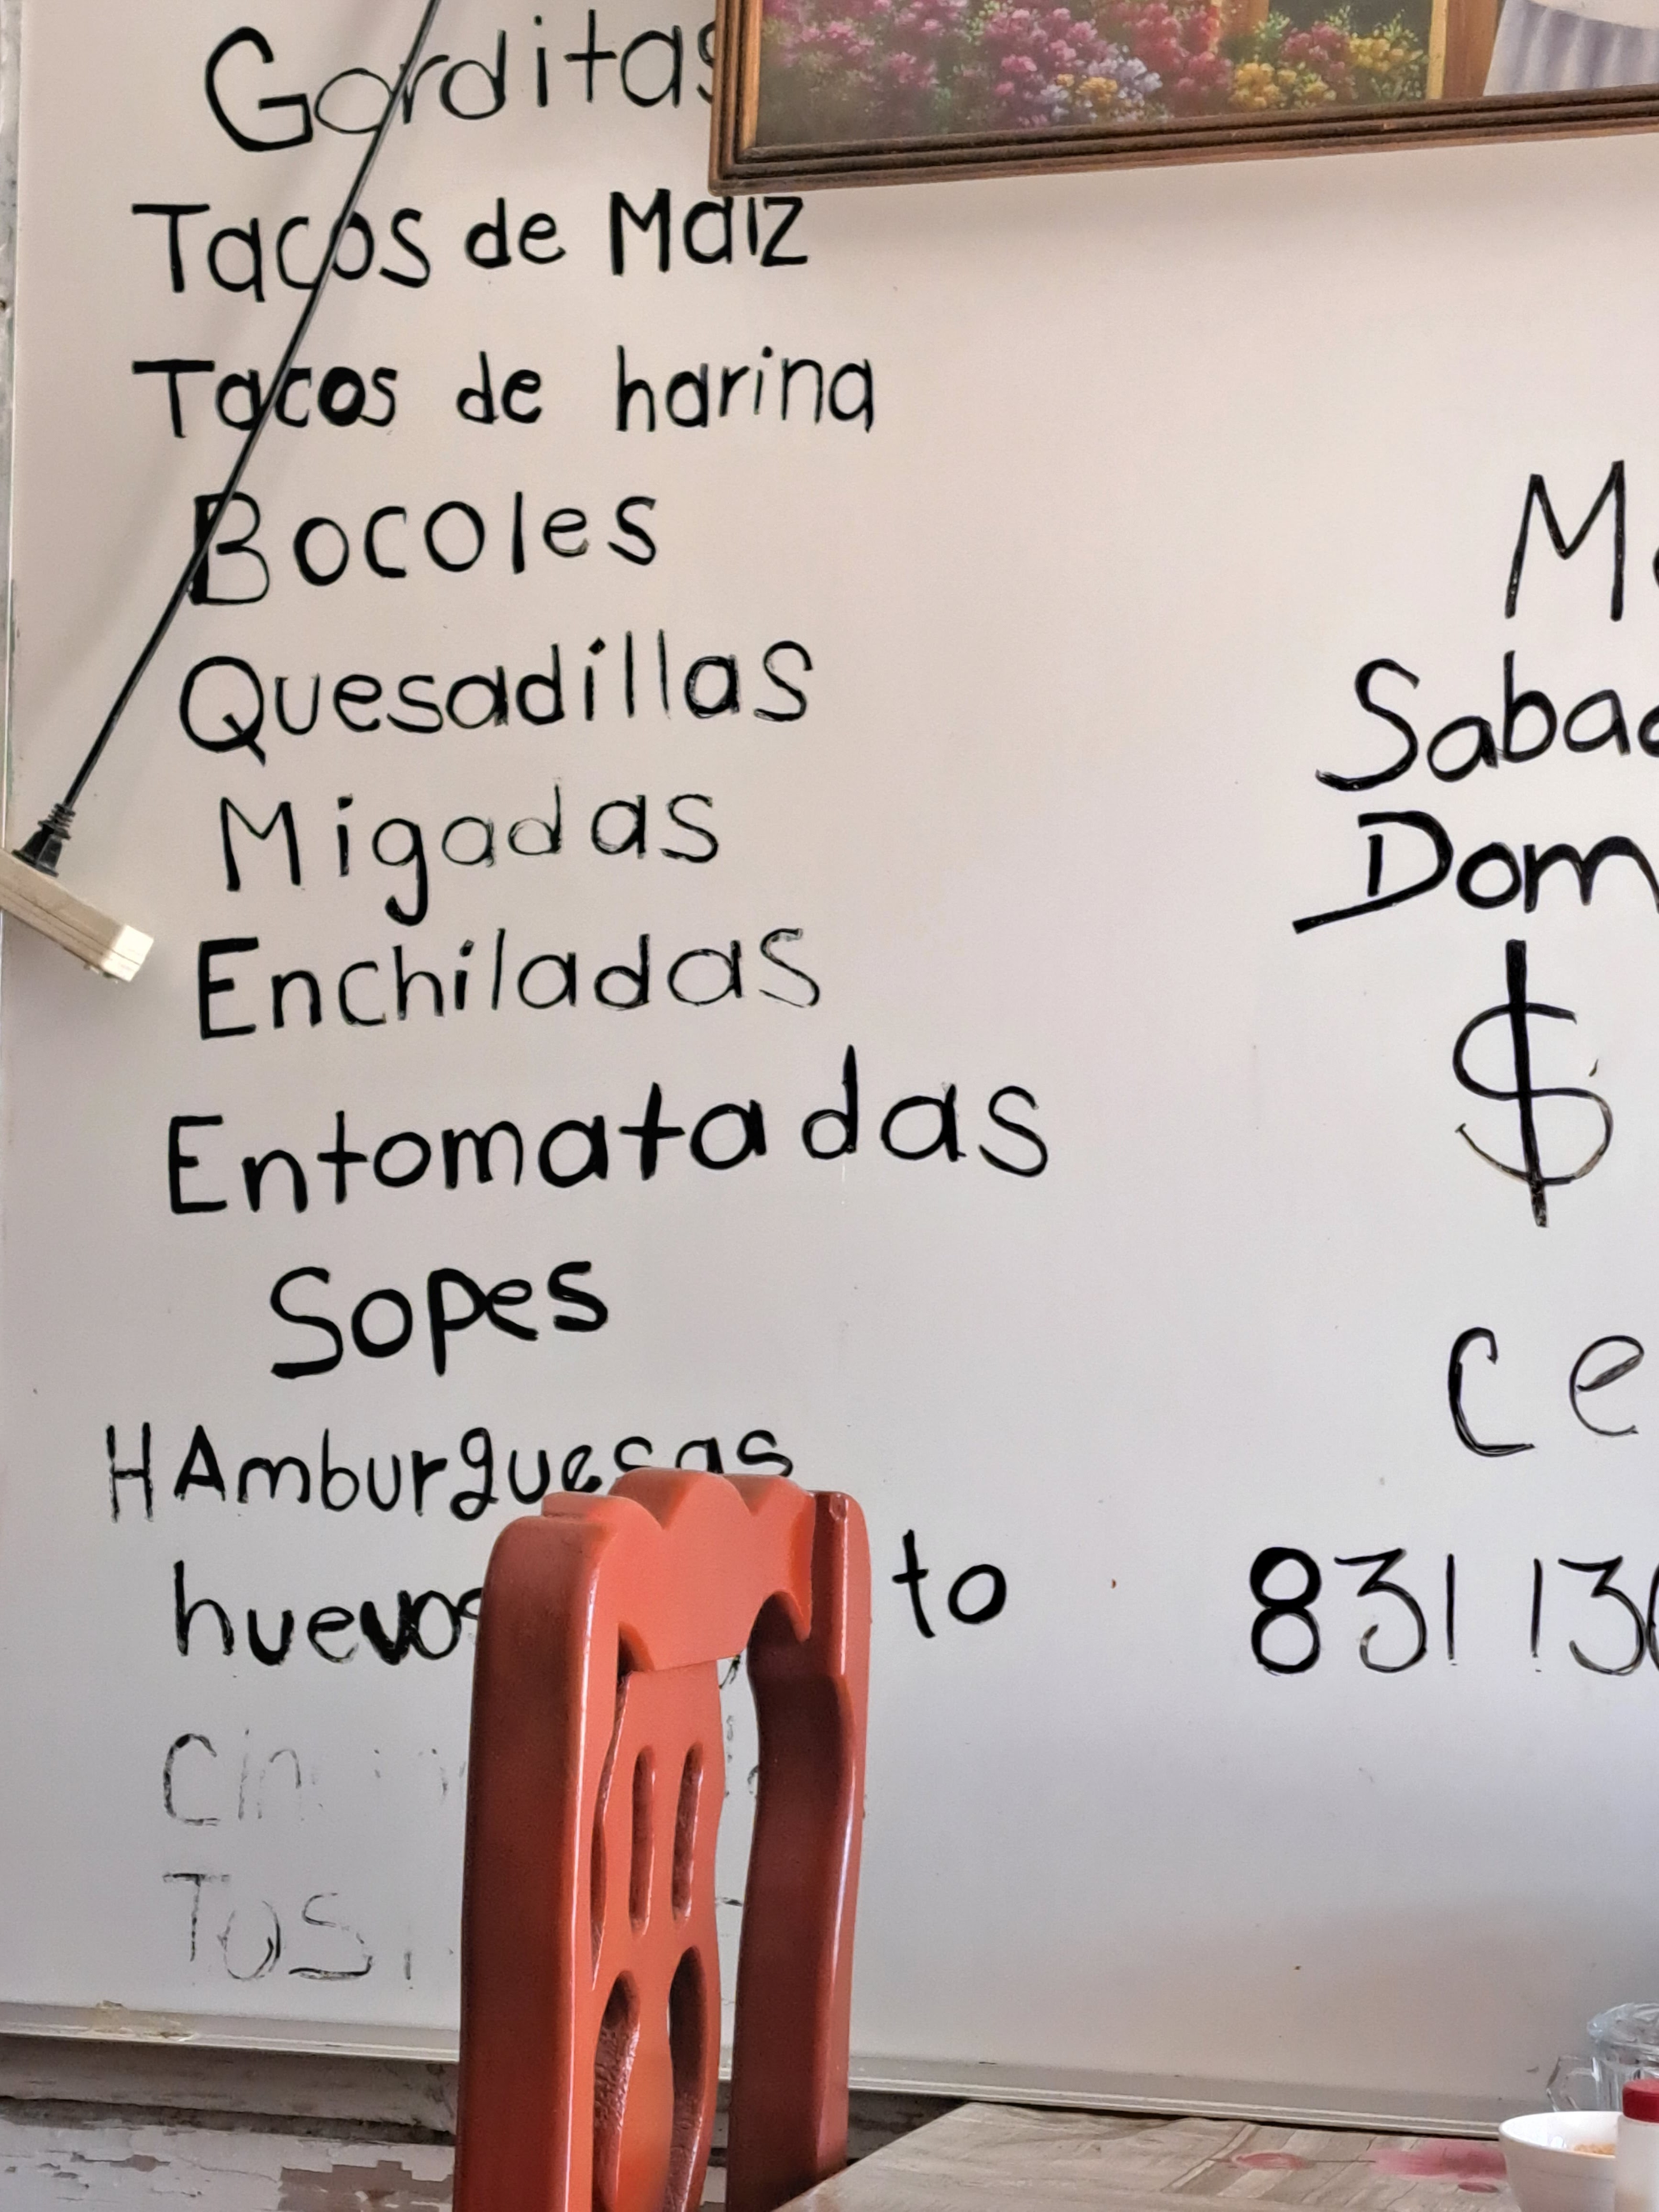 Gorditas
Tacos de Maiz
Tacos de harina
Bocoles
Quesadillas
Migadas
Enchiladas
Entomatadas
Sopes
HAmburguesas
huevos to
M
Sabad
Dom
$
ce
831 130